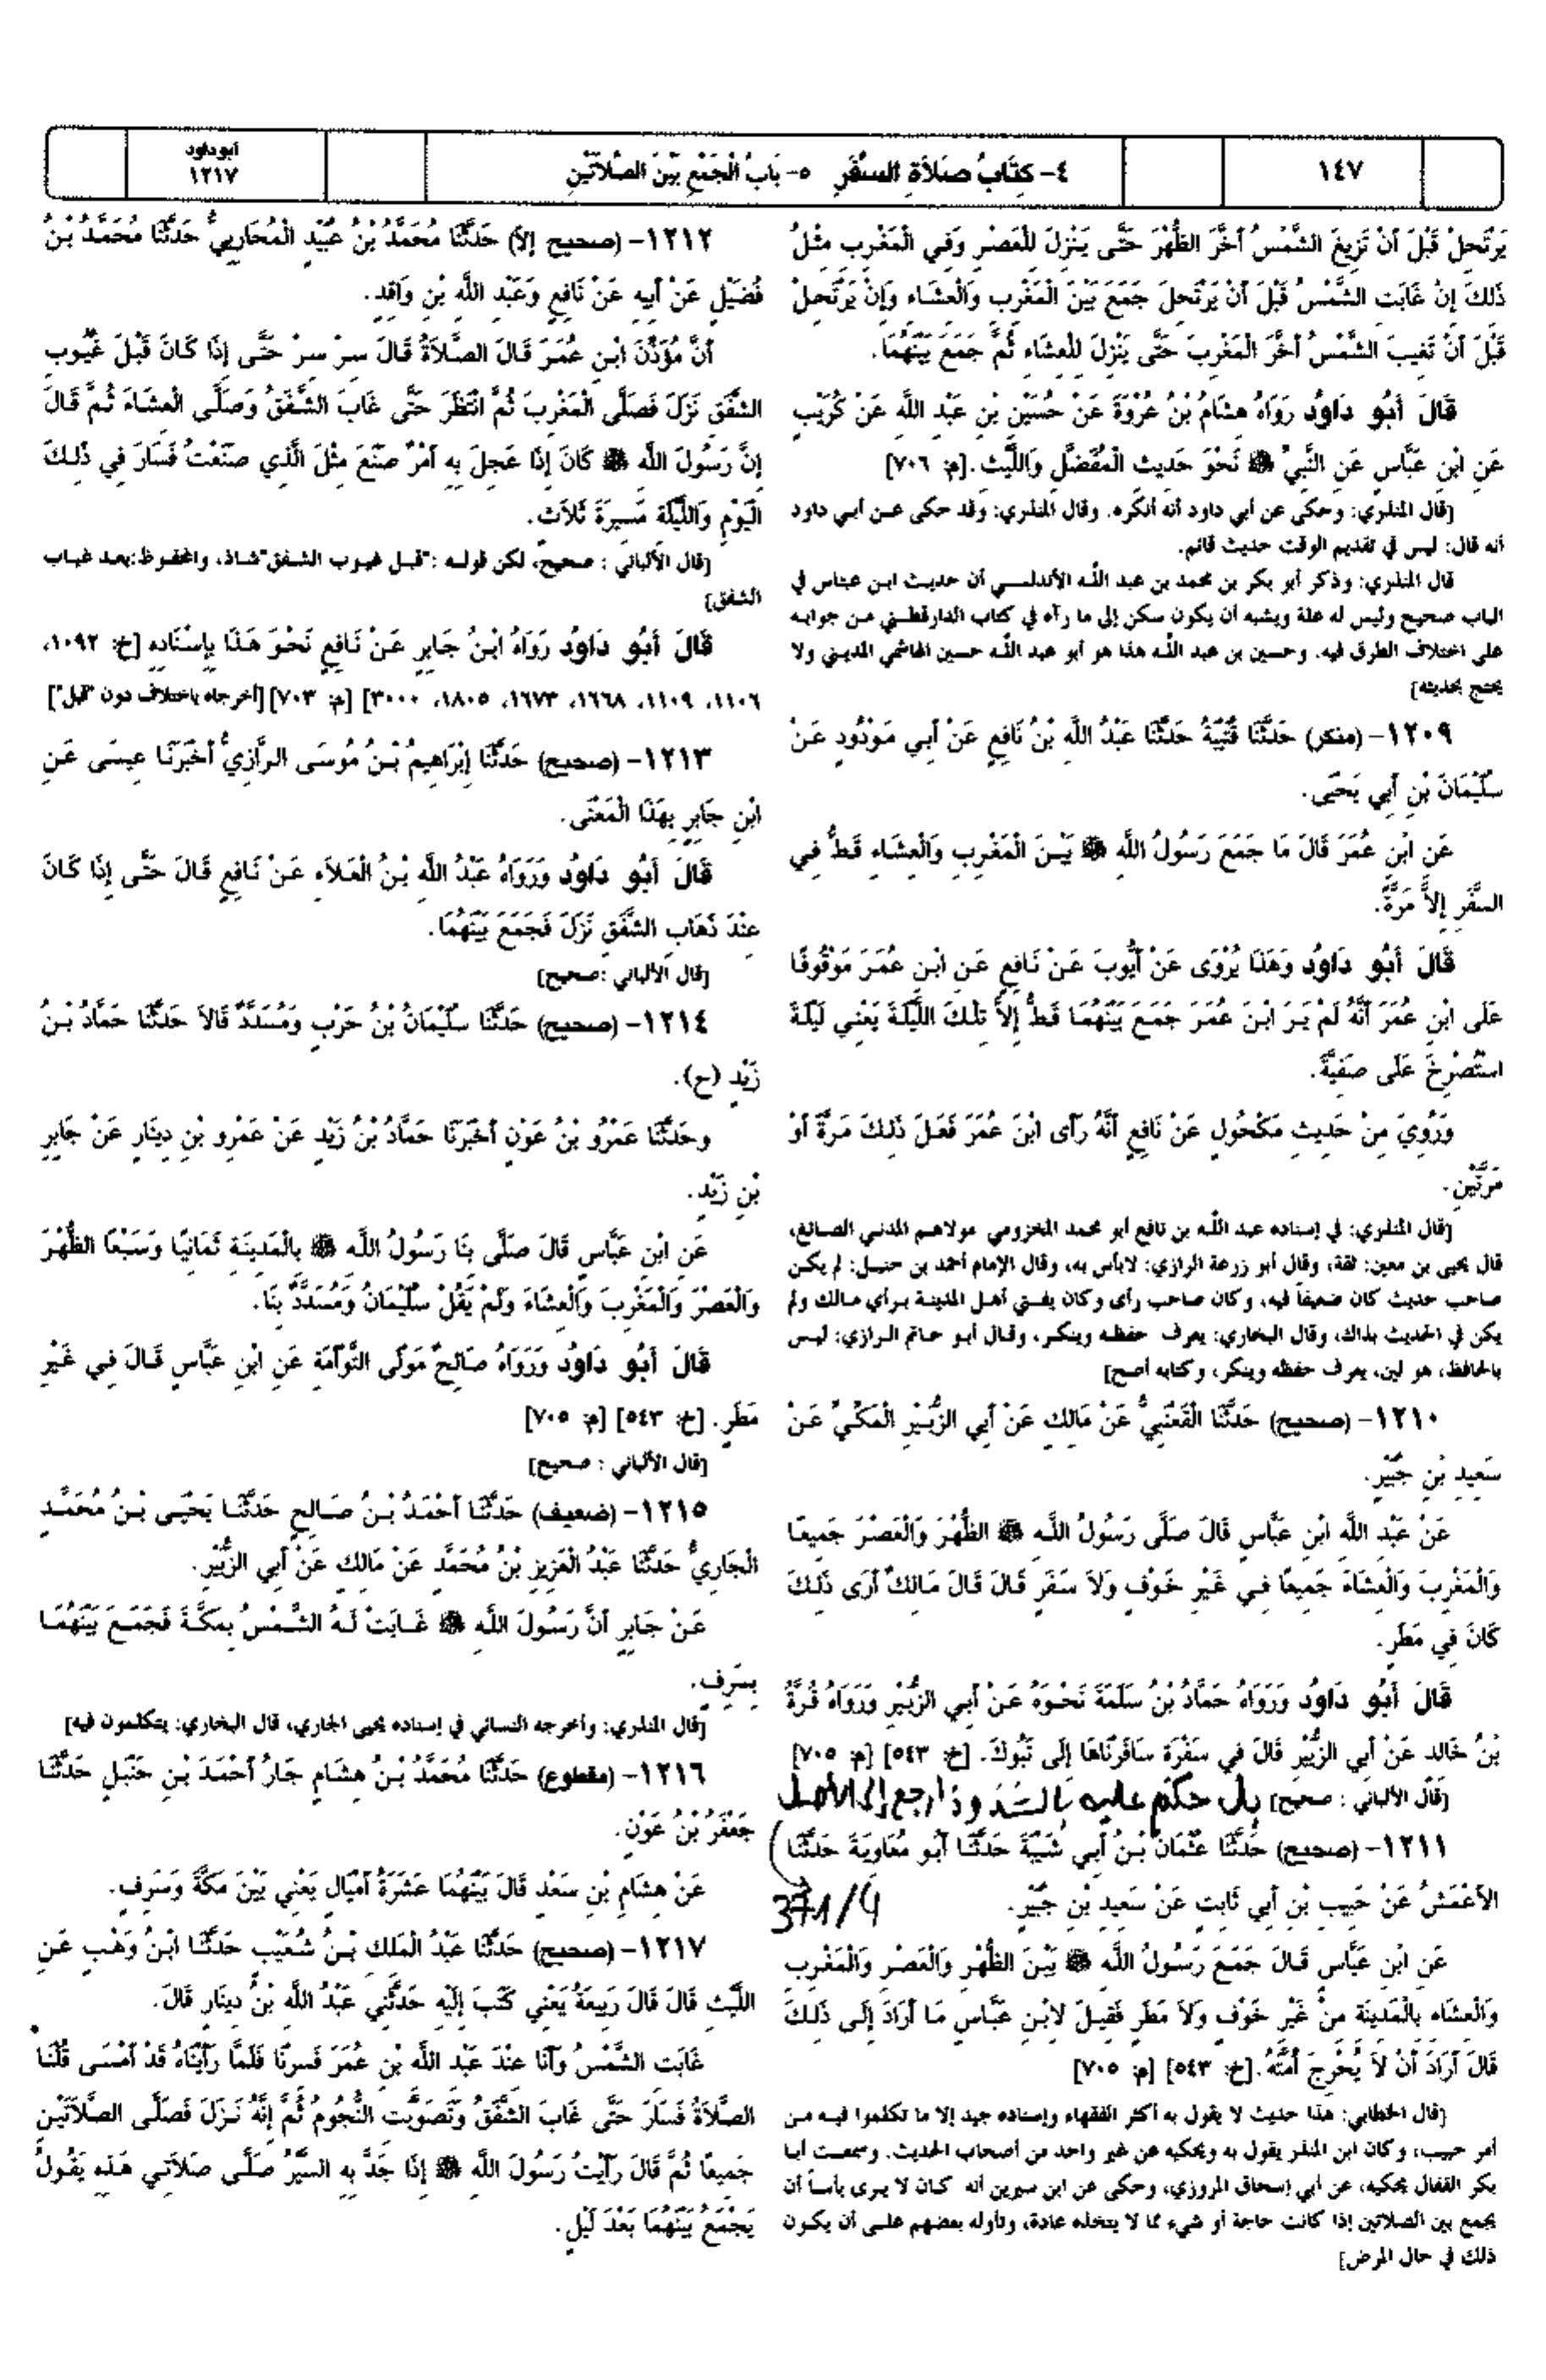 ١٤٧
٤- كِتَابُ صَلاَةِ السَّفَرِ ٥- بَابُ الْجَمْعِ بَيْنَ الصَّلاَتَيْنِ
أبو داود
١٢١٧
يَرْتَحِلْ قَبْلَ أَنْ تَزِيغَ الشَّمْسُ أَخَّرَ الظُّهْرَ حَتَّى يَنْزِلَ لِلْعَصْرِ وَفِي الْمَغْرِبِ مِثْلُ
ذَلِكَ إِنْ غَابَتِ الشَّمْسُ قَبْلَ أَنْ يَرْتَحِلَ جَمَعَ بَيْنَ الْمَغْرِبِ وَالْعِشَاءِ وَإِنْ يَرْتَحِلْ
قَبْلَ أَنْ تَغِيبَ الشَّمْسُ أَخَّرَ الْمَغْرِبَ حَتَّى يَنْزِلَ لِلْعِشَاءِ ثُمَّ جَمَعَ بَيْنَهُمَا.
قَالَ أَبُو دَاوُد رَوَاهُ هِشَامُ بْنُ عُرْوَةَ عَنْ حُسَيْنِ بْنِ عَبْدِ اللَّهِ عَنْ كُرَيْبٍ
عَنِ ابْنِ عَبَّاسٍ عَنِ النَّبِيِّ ﷺ نَحْوَ حَدِيثِ الْمُفَضَّلِ وَاللَّيْثِ.[م: ٧٠٦]
[قال المنذري: وحكى عن أبي داود أنه أنكره. وقال المنذري: وقد حكى عن أبي داود
أنه قال: ليس في تقديم الوقت حديث قائم.
قال المنذري: وذكر أبو بكر بن محمد بن عبد الله الأندلسي أن حديث ابن عباس في
الباب صحيح وليس له علة ويشبه أن يكون سكن إلى ما رآه في كتاب الدارقطني من جوابه
على اختلاف الطرق فيه. وحسين بن عبد الله هذا هو أبو عبد الله حسين الهاشمي المديني ولا
يحتج بحديثه]
١٢٠٩- (منكر) حَدَّثَنَا قُتَيْبَةُ حَدَّثَنَا عَبْدُ اللَّهِ بْنُ نَافِعٍ عَنْ أَبِي مَوْدُودٍ عَنْ
سُلَيْمَانَ بْنِ أَبِي يَحْيَى.
عَنِ ابْنِ عُمَرَ قَالَ مَا جَمَعَ رَسُولُ اللَّهِ ﷺ بَيْنَ الْمَغْرِبِ وَالْعِشَاءِ قَطُّ فِي
السَّفَرِ إِلاَّ مَرَّةً.
قَالَ أَبُو دَاوُد وَهَذَا يُرْوَى عَنْ أَيُّوبَ عَنْ نَافِعٍ عَنِ ابْنِ عُمَرَ مَوْقُوفًا
عَلَى ابْنِ عُمَرَ أَنَّهُ لَمْ يَرَ ابْنَ عُمَرَ جَمَعَ بَيْنَهُمَا قَطُّ إِلاَّ تِلْكَ اللَّيْلَةَ يَعْنِي لَيْلَةَ
اسْتُصْرِخَ عَلَى صَفِيَّةَ.
وَرُوِيَ مِنْ حَدِيثِ مَكْحُولٍ عَنْ نَافِعٍ أَنَّهُ رَأَى ابْنَ عُمَرَ فَعَلَ ذَلِكَ مَرَّةً أَوْ
مَرَّتَيْنِ.
[قال المنذري: في إسناده عبد الله بن نافع أبو محمد المخزومي مولاهم المدني الصائغ،
قال يحيى بن معين: ثقة، وقال أبو زرعة الرازي: لابأس به، وقال الإمام أحمد بن حنبل: لم يكن
صاحب حديث كان ضعيفاً فيه، وكان صاحب رأى وكان يفتي أهل المدينة برأي مالك ولم
يكن في الحديث بذاك، وقال البخاري: يعرف حفظه وينكر، وقال أبو حاتم الرازي: ليس
بالحافظ، هو لين، يعرف حفظه وينكر، وكتابه أصح]
١٢١٠- (صحيح) حَدَّثَنَا الْقَعْنَبِيُّ عَنْ مَالِكٍ عَنْ أَبِي الزُّبَيْرِ الْمَكِّيِّ عَنْ
سَعِيدِ بْنِ جُبَيْرٍ.
عَنْ عَبْدِ اللَّهِ ابْنِ عَبَّاسٍ قَالَ صَلَّى رَسُولُ اللَّهِ ﷺ الظُّهْرَ وَالْعَصْرَ جَمِيعًا
وَالْمَغْرِبَ وَالْعِشَاءَ جَمِيعًا فِي غَيْرِ خَوْفٍ وَلاَ سَفَرٍ قَالَ قَالَ مَالِكٌ أَرَى ذَلِكَ
كَانَ فِي مَطَرٍ.
قَالَ أَبُو دَاوُد وَرَوَاهُ حَمَّادُ بْنُ سَلَمَةَ نَحْوَهُ عَنْ أَبِي الزُّبَيْرِ وَرَوَاهُ قُرَّةُ
بْنُ خَالِدٍ عَنْ أَبِي الزُّبَيْرِ قَالَ فِي سَفْرَةٍ سَافَرْنَاهَا إِلَى تَبُوكَ. [خ: ٥٤٣] [م: ٧٠٥]
[قال الألباني : صحيح] بل حكم عليه بالشذوذ ارجع إلى الأصل
١٢١١- (صحيح) حَدَّثَنَا عُثْمَانُ بْنُ أَبِي شَيْبَةَ حَدَّثَنَا أَبُو مُعَاوِيَةَ حَدَّثَنَا
الأَعْمَشُ عَنْ حَبِيبِ بْنِ أَبِي ثَابِتٍ عَنْ سَعِيدِ بْنِ جُبَيْرٍ.
371/4
عَنِ ابْنِ عَبَّاسٍ قَالَ جَمَعَ رَسُولُ اللَّهِ ﷺ بَيْنَ الظُّهْرِ وَالْعَصْرِ وَالْمَغْرِبِ
وَالْعِشَاءِ بِالْمَدِينَةِ مِنْ غَيْرِ خَوْفٍ وَلاَ مَطَرٍ فَقِيلَ لاِبْنِ عَبَّاسٍ مَا أَرَادَ إِلَى ذَلِكَ
قَالَ أَرَادَ أَنْ لاَ يُحْرِجَ أُمَّتَهُ.[خ: ٥٤٣] [م: ٧٠٥]
[قال الخطابي: هذا حديث لا يقول به أكثر الفقهاء وإسناده جيد إلا ما تكلموا فيه من
أمر حبيب، وكان ابن المنذر يقول به ويحكيه عن غير واحد من أصحاب الحديث. وسمعت أبا
بكر القفال يحكيه، عن أبي إسحاق المروزي، وحكى عن ابن سيرين أنه كان لا يرى بأساً أن
يجمع بين الصلاتين إذا كانت حاجة أو شيء مما لا يتخذه عادة، وتأوله بعضهم على أن يكون
ذلك في حال المرض]
١٢١٢- (صحيح إلا) حَدَّثَنَا مُحَمَّدُ بْنُ عُبَيْدٍ الْمُحَارِبِيُّ حَدَّثَنَا مُحَمَّدُ بْنُ
فُضَيْلٍ عَنْ أَبِيهِ عَنْ نَافِعٍ وَعَبْدِ اللَّهِ بْنِ وَاقِدٍ.
أَنَّ مُؤَذِّنَ ابْنِ عُمَرَ قَالَ الصَّلاَةُ قَالَ سِرْ سِرْ حَتَّى إِذَا كَانَ قَبْلَ غُيُوبِ
الشَّفَقِ نَزَلَ فَصَلَّى الْمَغْرِبَ ثُمَّ انْتَظَرَ حَتَّى غَابَ الشَّفَقُ وَصَلَّى الْعِشَاءَ ثُمَّ قَالَ
إِنَّ رَسُولَ اللَّهِ ﷺ كَانَ إِذَا عَجِلَ بِهِ أَمْرٌ صَنَعَ مِثْلَ الَّذِي صَنَعْتُ فَسَارَ فِي ذَلِكَ
الْيَوْمِ وَاللَّيْلَةِ مَسِيرَةَ ثَلاَثٍ.
[قال الألباني : صحيح، لكن قوله :"قبل غيوب الشفق"شاذ، والمحفوظ:بعد غياب
الشفق]
قَالَ أَبُو دَاوُد رَوَاهُ ابْنُ جَابِرٍ عَنْ نَافِعٍ نَحْوَ هَذَا بِإِسْنَادِهِ [خ: ١٠٩٢،
١١٠٦، ١١٠٩، ١٦٦٨، ١٦٧٣، ١٨٠٥، ٣٠٠٠] [م: ٧٠٣] [أخرجاه باختلاف دون "قبل"]
١٢١٣- (صحيح) حَدَّثَنَا إِبْرَاهِيمُ بْنُ مُوسَى الرَّازِيُّ أَخْبَرَنَا عِيسَى عَنِ
ابْنِ جَابِرٍ بِهَذَا الْمَعْنَى.
قَالَ أَبُو دَاوُد وَرَوَاهُ عَبْدُ اللَّهِ بْنُ الْعَلاَءِ عَنْ نَافِعٍ قَالَ حَتَّى إِذَا كَانَ
عِنْدَ ذَهَابِ الشَّفَقِ نَزَلَ فَجَمَعَ بَيْنَهُمَا.
[قال الألباني :صحيح]
١٢١٤- (صحيح) حَدَّثَنَا سُلَيْمَانُ بْنُ حَرْبٍ وَمُسَدَّدٌ قَالاَ حَدَّثَنَا حَمَّادُ بْنُ
زَيْدٍ (ح).
وحَدَّثَنَا عَمْرُو بْنُ عَوْنٍ أَخْبَرَنَا حَمَّادُ بْنُ زَيْدٍ عَنْ عَمْرِو بْنِ دِينَارٍ عَنْ جَابِرِ
بْنِ زَيْدٍ.
عَنِ ابْنِ عَبَّاسٍ قَالَ صَلَّى بِنَا رَسُولُ اللَّهِ ﷺ بِالْمَدِينَةِ ثَمَانِيًا وَسَبْعًا الظُّهْرَ
وَالْعَصْرَ وَالْمَغْرِبَ وَالْعِشَاءَ وَلَمْ يَقُلْ سُلَيْمَانُ وَمُسَدَّدٌ بِنَا.
قَالَ أَبُو دَاوُد وَرَوَاهُ صَالِحٌ مَوْلَى التَّوْأَمَةِ عَنِ ابْنِ عَبَّاسٍ قَالَ فِي غَيْرِ
مَطَرٍ. [خ: ٥٤٣] [م: ٧٠٥]
[قال الألباني : صحيح]
١٢١٥- (ضعيف) حَدَّثَنَا أَحْمَدُ بْنُ صَالِحٍ حَدَّثَنَا يَحْيَى بْنُ مُحَمَّدٍ
الْجَارِيُّ حَدَّثَنَا عَبْدُ الْعَزِيزِ بْنُ مُحَمَّدٍ عَنْ مَالِكٍ عَنْ أَبِي الزُّبَيْرِ.
عَنْ جَابِرٍ أَنَّ رَسُولَ اللَّهِ ﷺ غَابَتْ لَهُ الشَّمْسُ بِمَكَّةَ فَجَمَعَ بَيْنَهُمَا
بِسَرِفٍ.
[قال المنذري: وأخرجه النسائي في إسناده يحيى الجاري، قال البخاري: يتكلمون فيه]
١٢١٦- (مقطوع) حَدَّثَنَا مُحَمَّدُ بْنُ هِشَامٍ جَارُ أَحْمَدَ بْنِ حَنْبَلٍ حَدَّثَنَا
جَعْفَرُ بْنُ عَوْنٍ.
عَنْ هِشَامِ بْنِ سَعْدٍ قَالَ بَيْنَهُمَا عَشَرَةُ أَمْيَالٍ يَعْنِي بَيْنَ مَكَّةَ وَسَرِفٍ.
١٢١٧- (صحيح) حَدَّثَنَا عَبْدُ الْمَلِكِ بْنُ شُعَيْبٍ حَدَّثَنَا ابْنُ وَهْبٍ عَنِ
اللَّيْثِ قَالَ قَالَ رَبِيعَةُ يَعْنِي كَتَبَ إِلَيْهِ حَدَّثَنِي عَبْدُ اللَّهِ بْنُ دِينَارٍ قَالَ.
غَابَتِ الشَّمْسُ وَأَنَا عِنْدَ عَبْدِ اللَّهِ بْنِ عُمَرَ فَسِرْنَا فَلَمَّا رَأَيْنَاهُ قَدْ أَمْسَى قُلْنَا
الصَّلاَةُ فَسَارَ حَتَّى غَابَ الشَّفَقُ وَتَصَوَّبَتِ النُّجُومُ ثُمَّ إِنَّهُ نَزَلَ فَصَلَّى الصَّلاَتَيْنِ
جَمِيعًا ثُمَّ قَالَ رَأَيْتُ رَسُولَ اللَّهِ ﷺ إِذَا جَدَّ بِهِ السَّيْرُ صَلَّى صَلاَتِي هَذِهِ يَقُولُ
يَجْمَعُ بَيْنَهُمَا بَعْدَ لَيْلٍ.